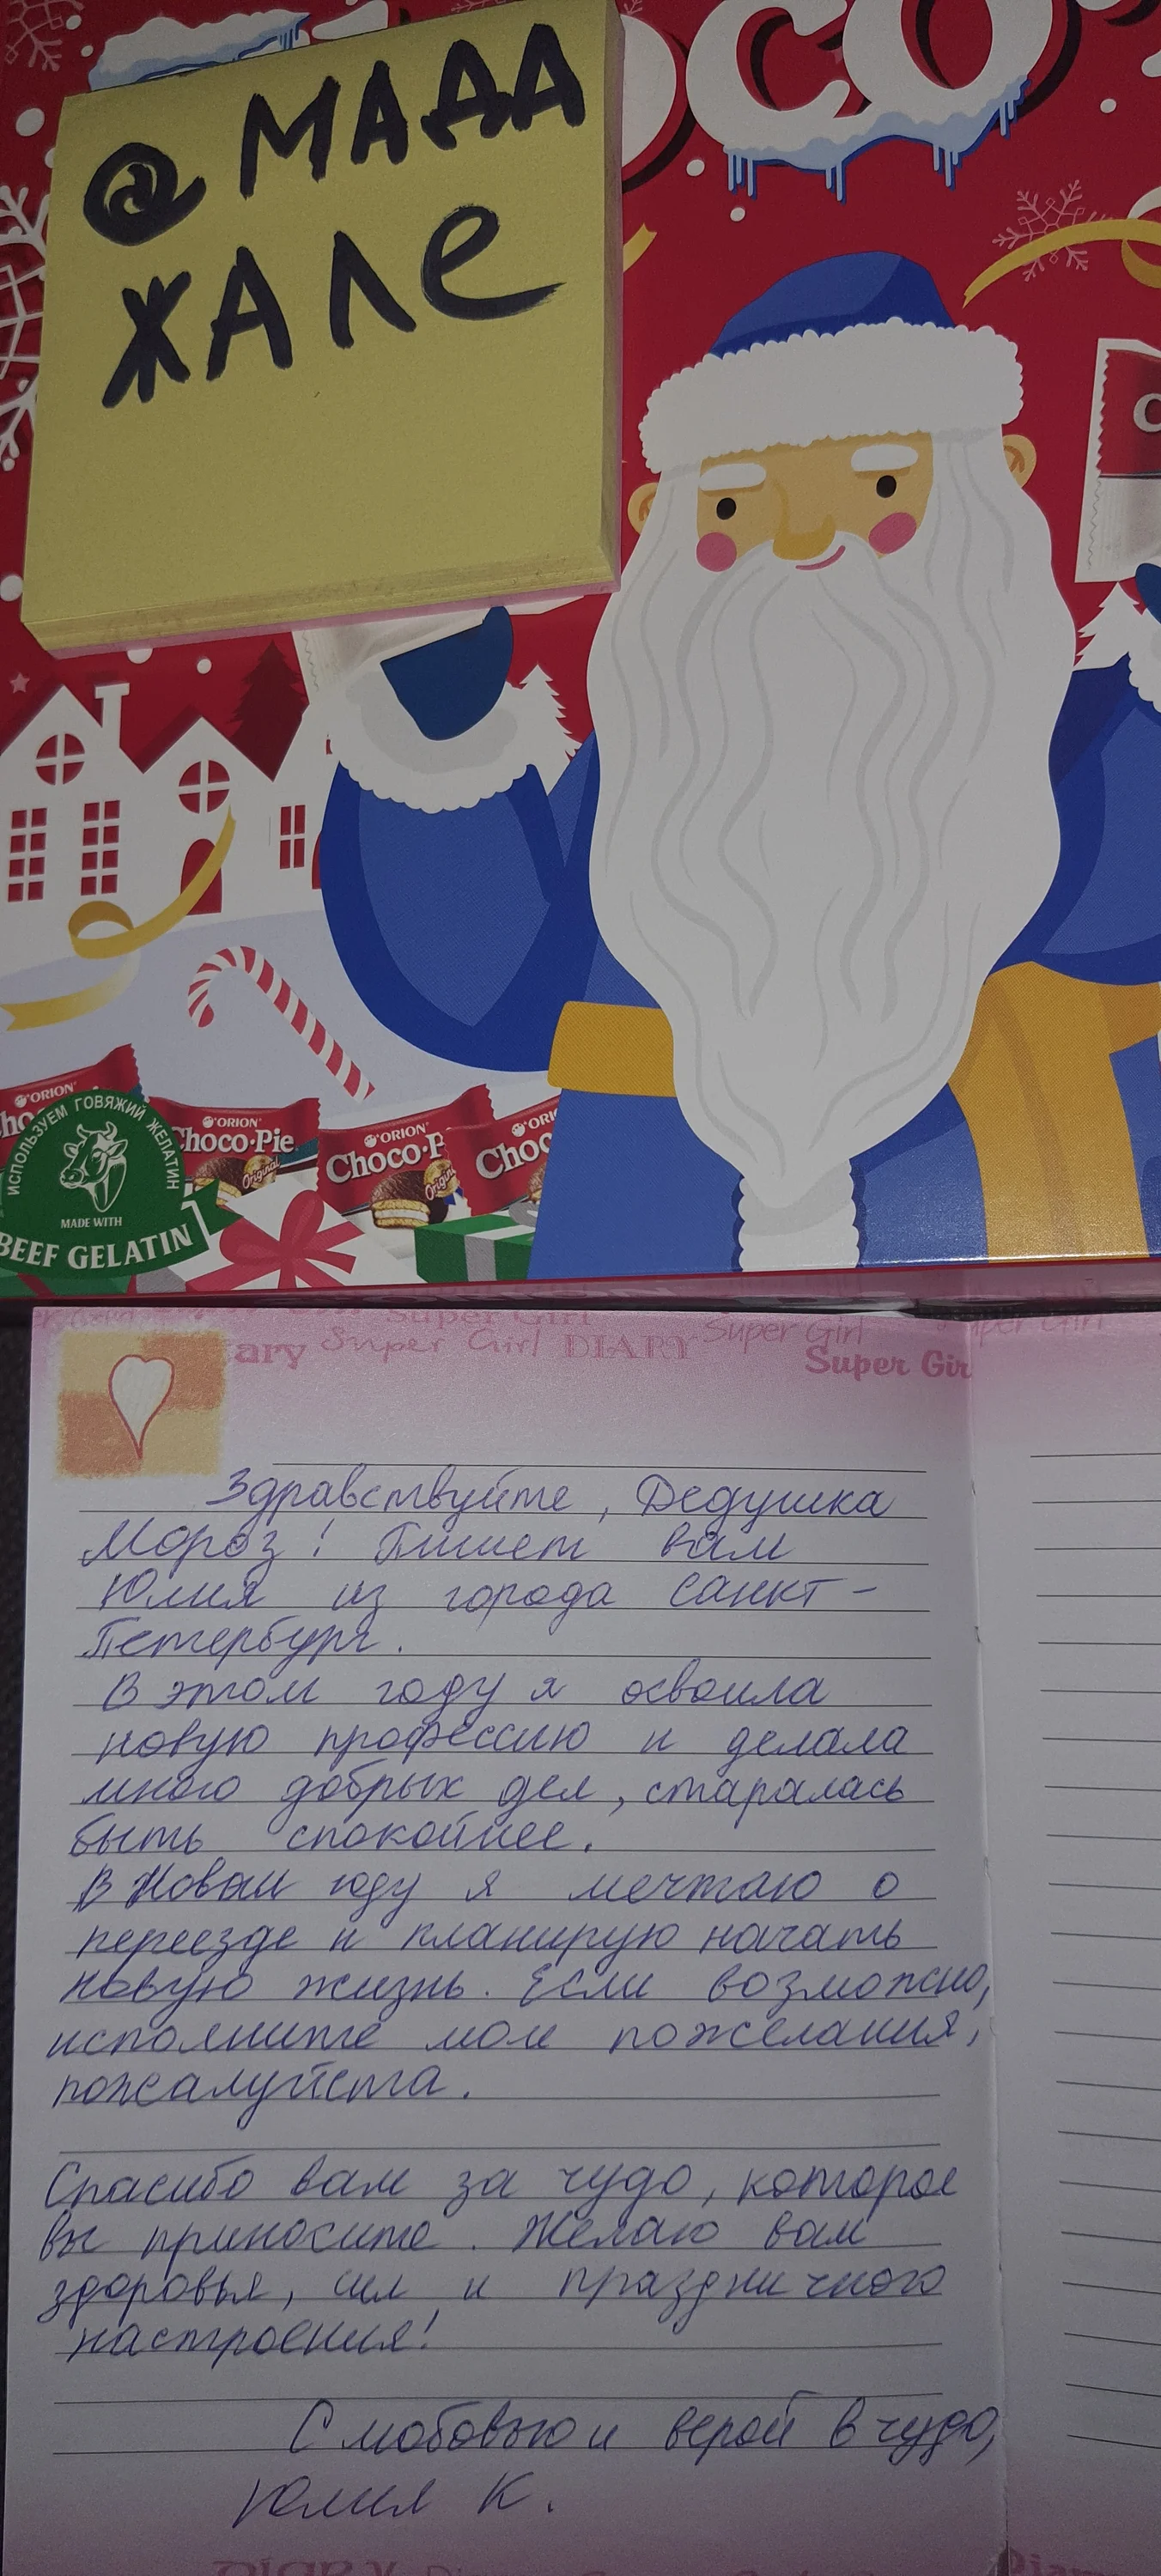 @ МАДА
ЖАЛЕ
OCO
C
ORION
Choco-Pie
Original
ORION
Choco-P
Origin
ORI
Choc
ИСПОЛЬЗУЕМ ГОВЯЖИЙ ЖЕЛАТИН
MADE WITH
BEEF GELATIN
Super Girl
ary Super Girl DIARY Super Girl
Super Gir
Здравствуйте, Дедушка
Мороз! Пишет вам
Юлия из города Санкт-
Петербург.
В этом году я освоила
новую профессию и делала
много добрых дел, старалась
быть спокойнее.
В Новом году я мечтаю о
переезде и планирую начать
новую жизнь. Если возможно,
исполните мои пожелания,
пожалуйста.
Спасибо вам за чудо, которое
вы приносите. Желаю вам
здоровья, сил и праздничного
настроения!
С любовью и верой в чудо,
Юлия К.